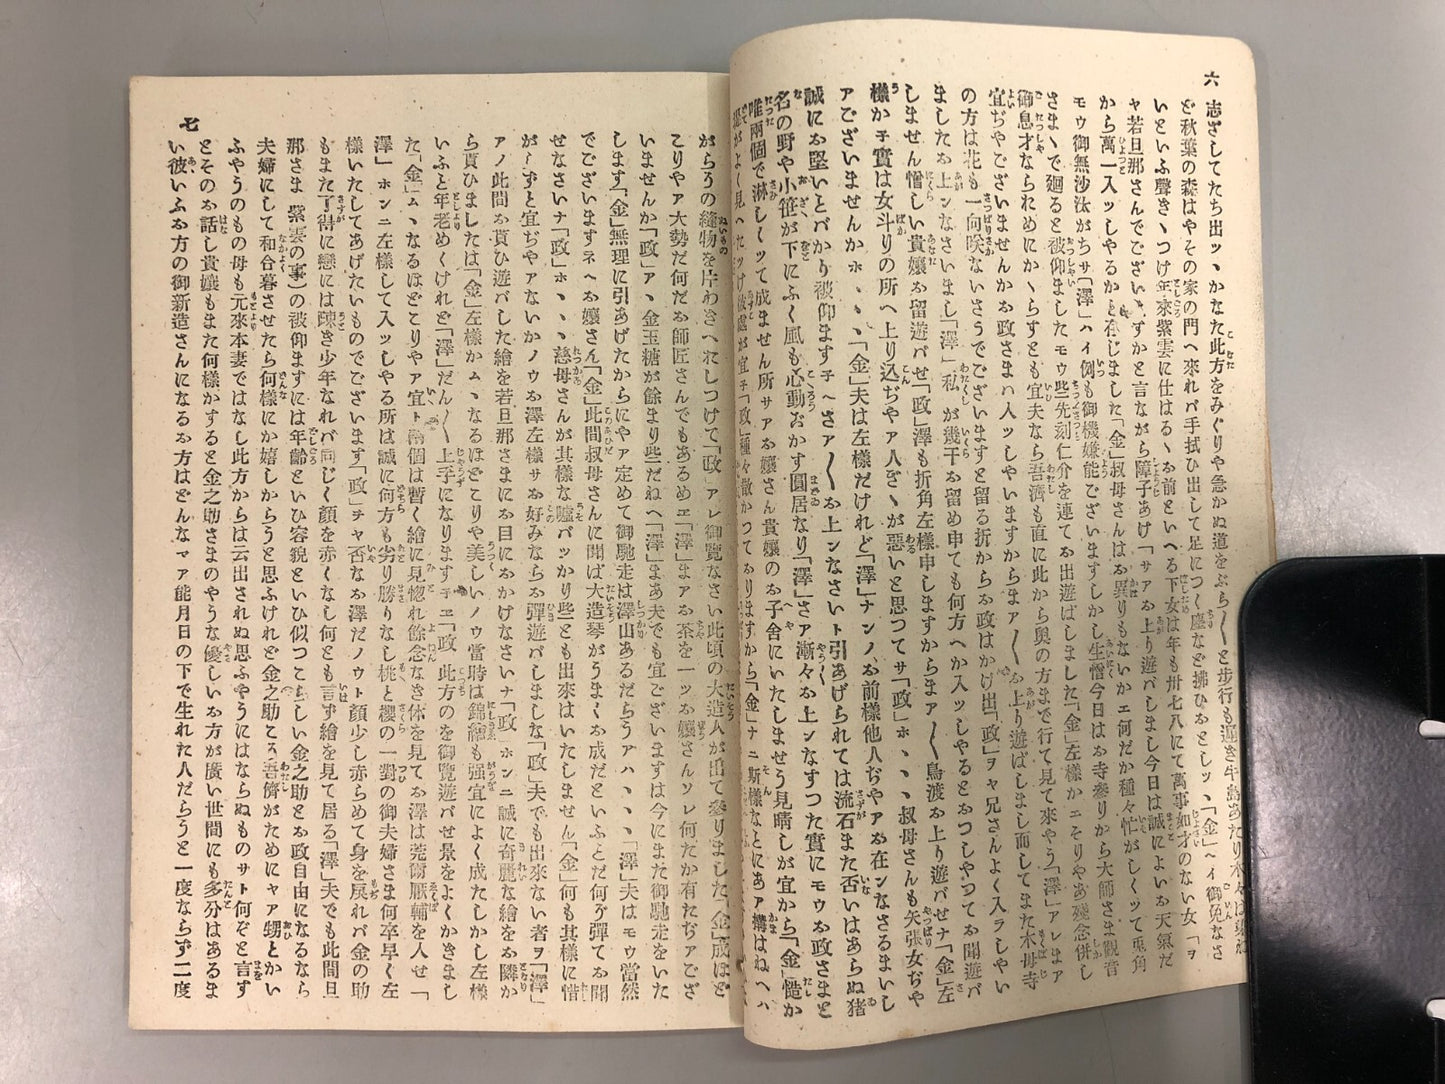 六
志ざしてたち出ッヽかなた此方をみぐりや急かぬ道をぶら〳〵と歩行も遅き牛島あたり木々は
ど秋葉の森はやその家の門へ來れバ手拭ひ出して足につく塵など拂ひおとしッヽ「金」ヘイ御免なさ
いといふ聲きヽつけ年來紫雲に仕はるヽお前といへる下女は年も卅七八にて萬事如才のない女「ヲ
ヤ若旦那さんでございますかと言ながら障子あけ「サアお上り遊バしまし今日は誠によいお天氣だ
から萬一入ッしやるかと存じました「金」叔母さんはお異りもないかエ何だか種々忙がしくッて兎角
モウ御無沙汰がちサ「澤」ハイ例も御機嫌能ございますしかし生憎今日はお寺參りから大師さま觀音
さまヽで廻ると被仰ましたモウ些先刻仁介を連てお出遊ばしました「金」左樣かエそりやあ殘念併し
御息才ならあれめにかヽらずとも宜夫なら吾濟も直に此から奥の方まで行て見て來やう「澤」アレまア
宜ぢやございませんかお政さまハ入ッしやいますからまア〳〵お上り遊ばしまし而してまた木母寺
の方は花も一向咲ないさうでございますと留る折からお政はかけ出「政」ヲヤ兄さんよく入ラしやい
ましたお上ンなさいまし「澤」私が幾干お留め申ても何方へか入ッしやるとおつしやつてお聞遊バ
しません憎しい貴孃お留遊バせ「政」澤も折角左樣申しますからまア〳〵鳥渡お上り遊バせナ「金」左
樣かチ實は女斗りの所へ上り込ぢやア人ぎヽが惡いと思つてサ「政」ホヽヽ叔母さんも矢張女ぢや
アございませんかホヽヽヽ「金」夫は左樣だけれど「澤」ナンノお前樣他人ぢやアお在ンなさるまいし
誠にお堅いとバかり被仰ますチヘさア〳〵お上ンなさいト引あげられては流石また否いはあらぬ猪
名の野や小笹が下にふく風も心動おかす圓居なり「澤」さア漸々お上ンなすつた實にモウお政さまと
唯兩個で淋しくッて成ません所サアお孃さん貴孃のお子舍にいたしませう見晴しが宜から「金」憖か
がよく見へたッけ彼處が宜チ「政」種々散かつておりますから「金」ナニ斯樣なとにあア搆はねヘハ
七
がらうの縫物を片わきへれしつけて「政」アレ御覽なさい此頃の大造人が出て參りました「金」成ほど
こりやア大勢だ何だお師匠さんでもあるめエ「澤」まアお茶を一ッお孃さんソレ何たか有たぢアござ
いませんか「政」アヽ金玉糖が餘まり些だねへ「澤」まあ夫でも宜ございますは今にまた御馳走をいた
します「金」無理に引あげたからにやア定めて御馳走は澤山あるだらうアハヽヽヽ「澤」夫はモウ當然
でございますネヘお孃さん「金」此間叔母さんに聞ば大造琴がうまくお成だといふとだ何ぞ彈てお聞
せなさいナ「政」ホヽヽヽ慈母さんが其樣な嘘バッかり些とも出來はいたしません「金」何も其樣に惜
が〳〵ずと宜ぢやアないかノウお澤左樣サお好みならお彈遊バしましな「政」夫でも出來ない者ヲ「澤」
アノ此間お貰ひ遊バした繪を若旦那さまにお目におかけなさいナ「政」ホンニ誠に奇麗な繪をお隣か
ら貰ひましたは「金」左樣かムヽなるほどこりや美しいノウ當時は錦繪も强宜によく成たしかし左樣
いふと年老めくけれど「澤」だん〳〵上手になりますチエ「政」此方のを御覽遊バせ景をよくかきまし
た「金」ムヽなるほどこりやア宜ト兩個は暫く繪に見惚れ餘念なき体を見てお澤は莞爾厭輔を人せ「
澤」ホンニ左樣して入ッしやる所は誠に何方も劣り勝りなし桃と櫻の一對の御夫婦さま何卒早く左
樣いたしてあげたいものでございます「政」チャ否なお澤だノウト顔少し赤らめて身を戾れバ金の助
もまた了得に戀には疎き少年なれバ同じく顔を赤くなし何とも言ず繪を見て居る「澤」夫でも此間旦
那さま（紫雲の事）の被仰ますには年齢といひ容貌といひ似つこらしい金之助とお政自由になるなら
夫婦にして和合暮させたら何樣にか嬉しからうと思ふけれど金之助ところ吾儕がためにャア甥とかい
ふやうのもの母も元來本妻ではなし此方からは云出されぬ思ふやうにはならぬものサト何ぞと言ず
とそのお話し貴孃もまた何樣かすると金之助さまのやうな優しいお方が廣い世間にも多分はあるま
い彼いふお方の御新造さんになるお方はどんなマア能月日の下で生れた人だらうと一度ならず二度